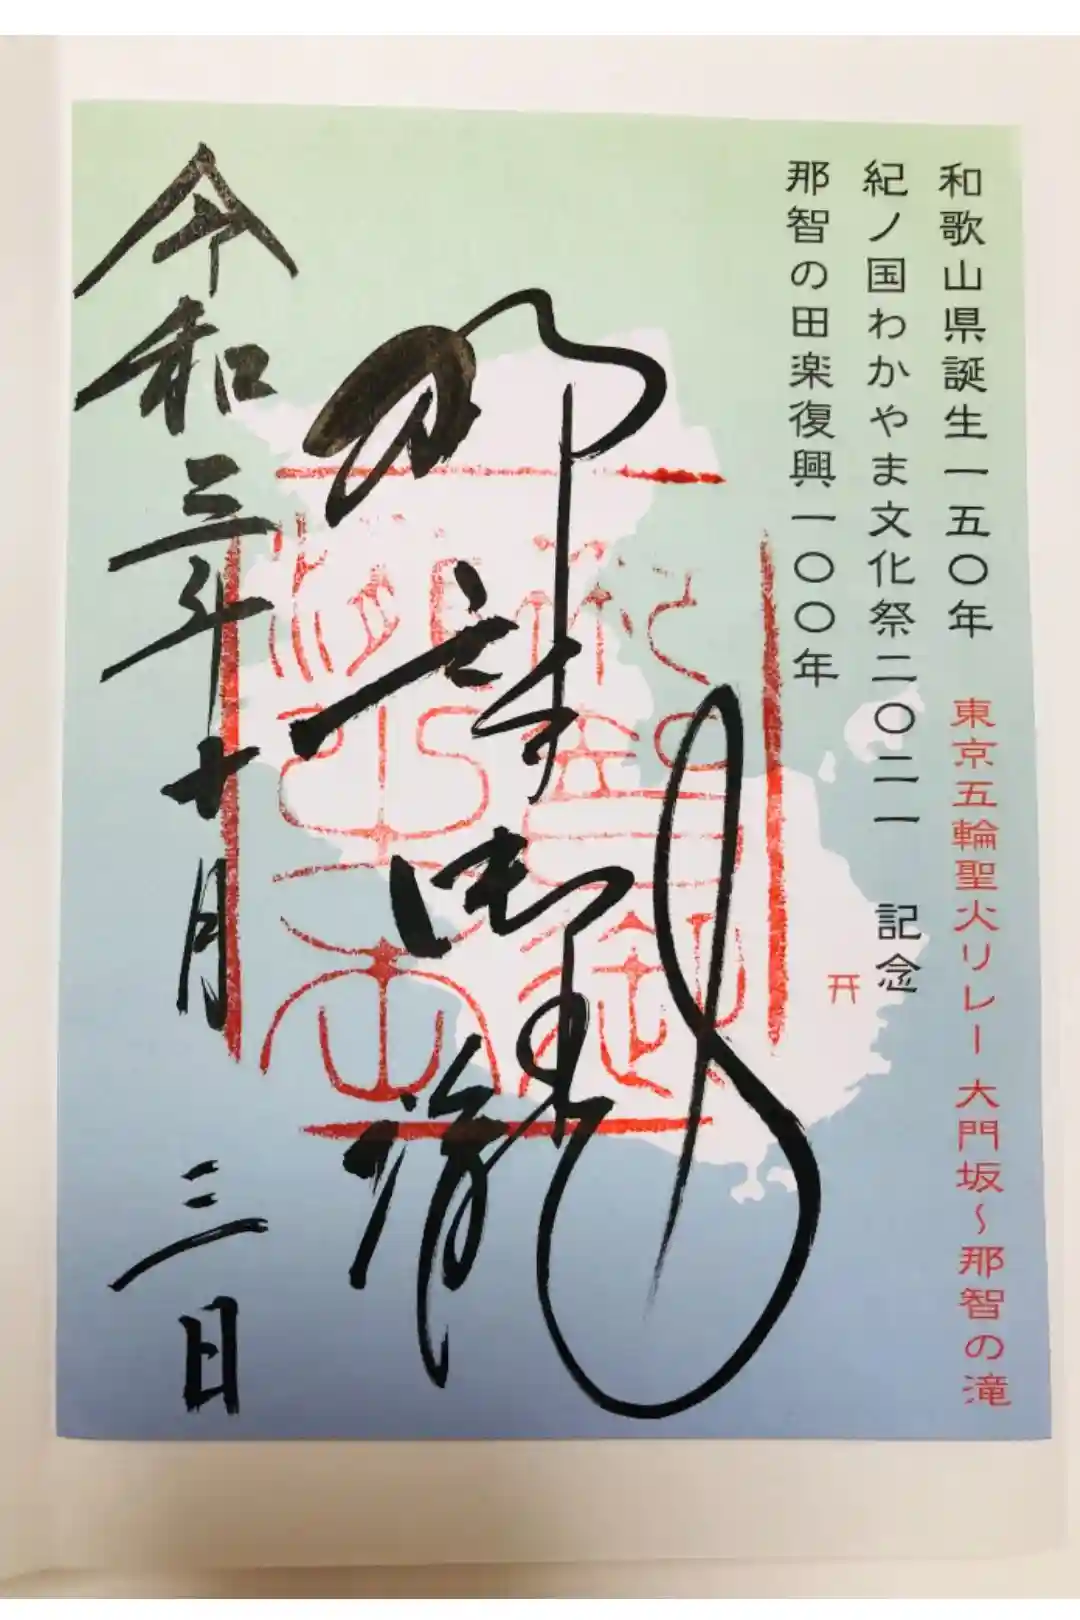 和歌山県誕生一五〇年
東京五輪聖火リレー 大門坂~那智の滝
紀ノ国わかやま文化祭二〇二一 記念
那智の田楽復興一〇〇年
那智御瀧
令和三年十月三日